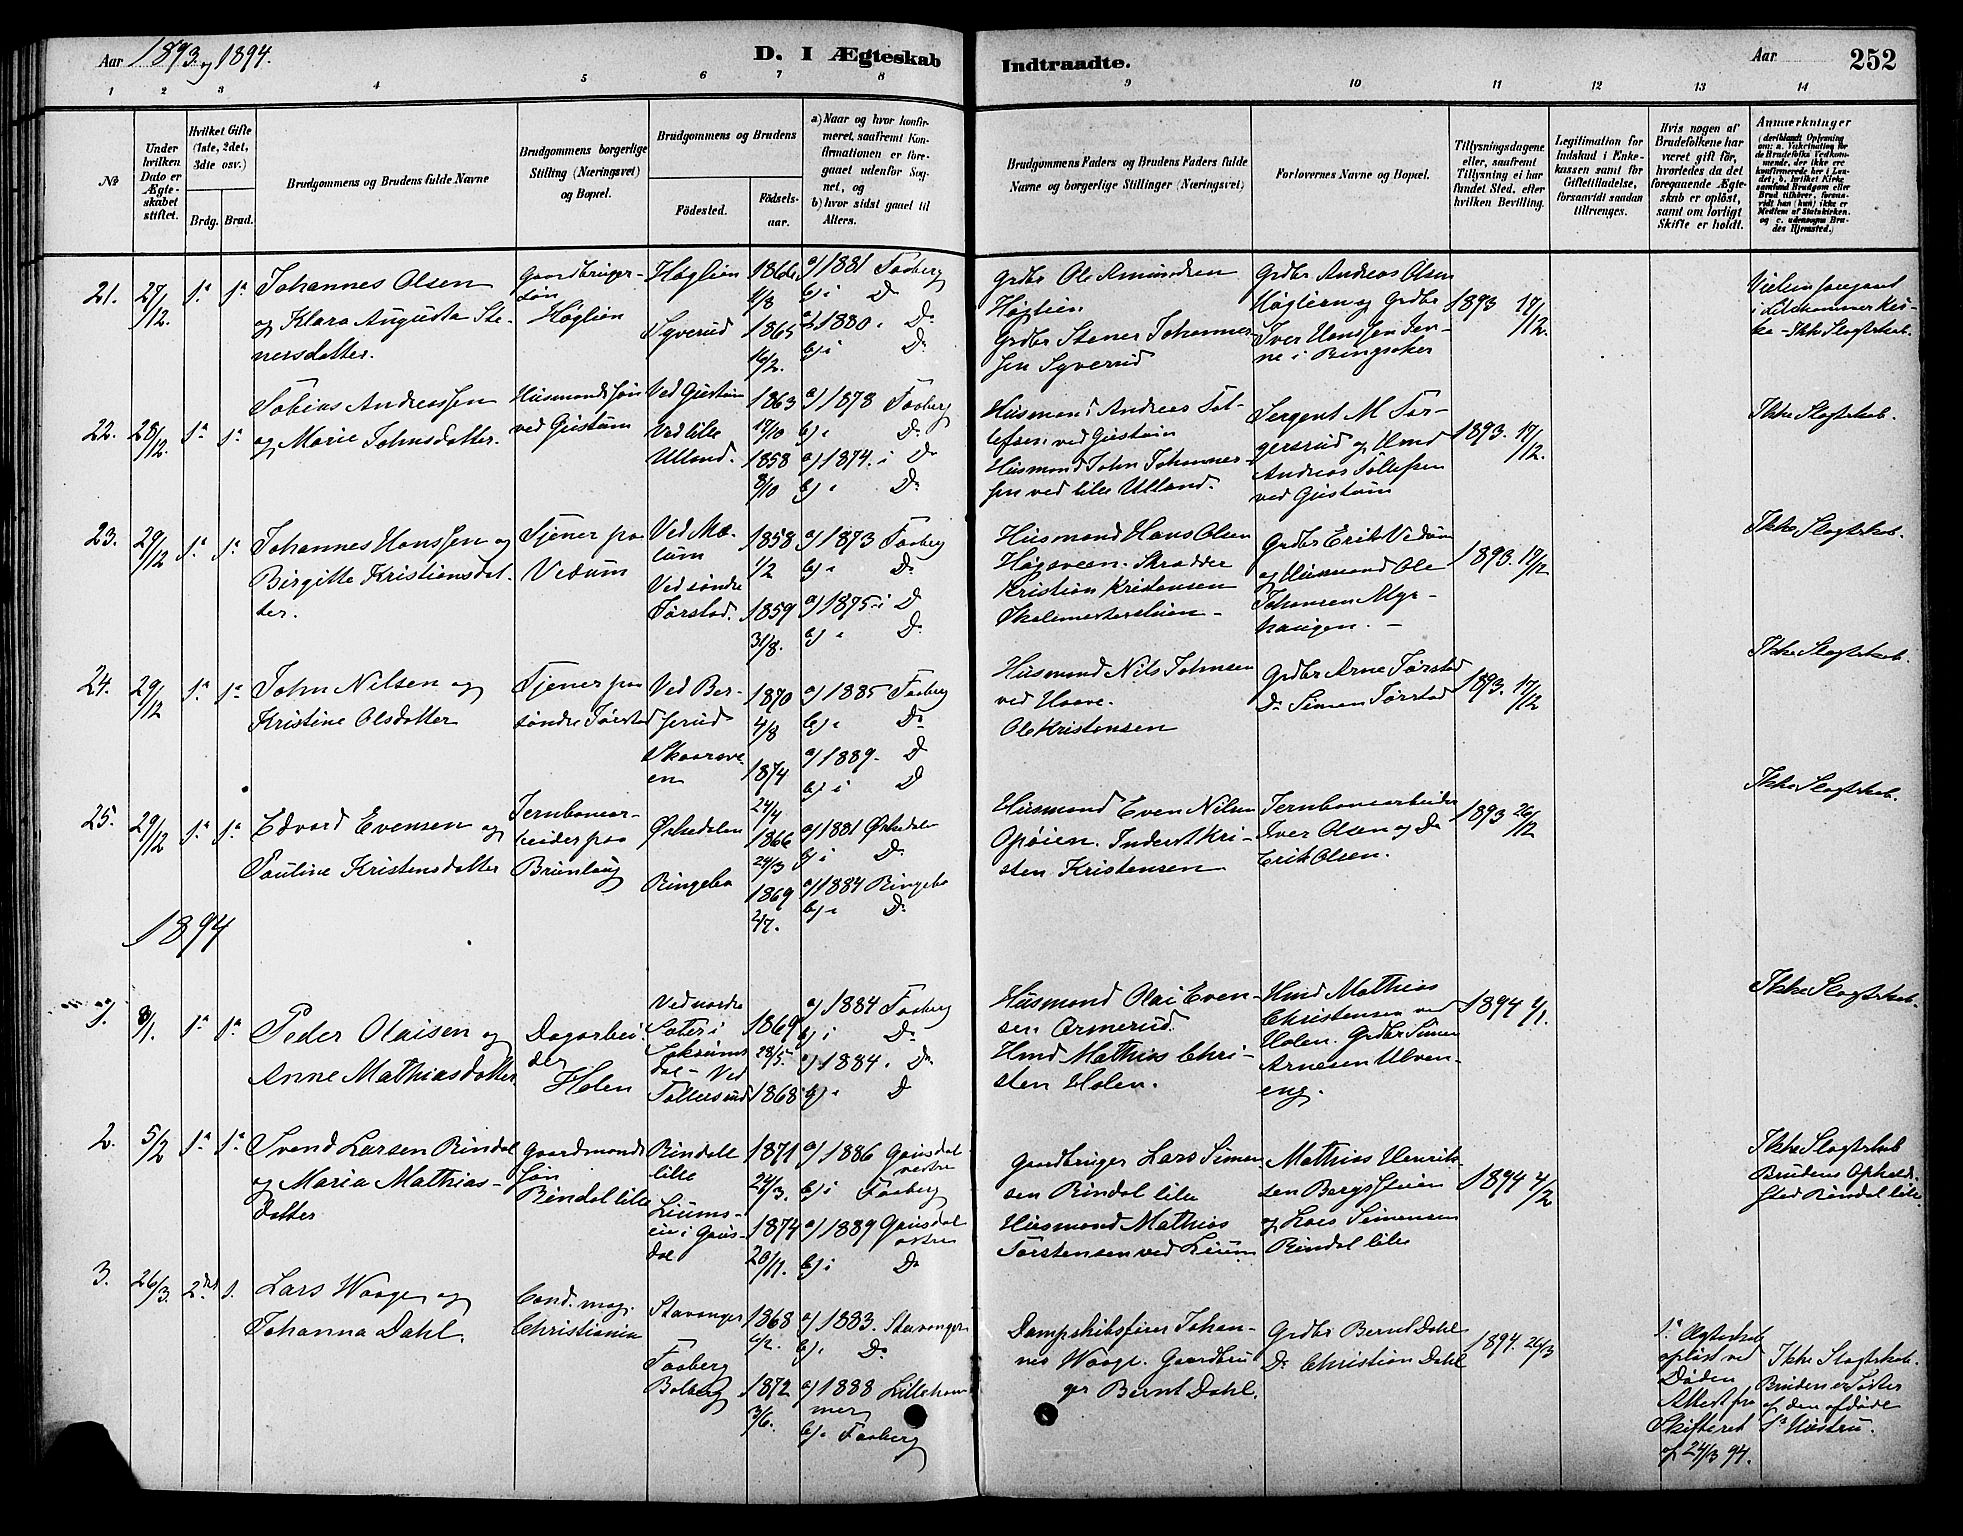 Aar 1893 og 1894.
D. I Ægteskab Indtraadte.
Aar 252
1 2 3 4 5 6 7 8 9 10 11 12 13 14
№
Under hvilken Dato er Ægteskabet stiftet.
Hvilket Gifte (1ste, 2det, 3dte osv.)
Brdg. Brud.
Brudgommens og Brudens fulde Navne
Brudgommens borgerlige Stilling (Næringsvei) og Bopæl.
Brudgommens og Brudens
Fødested.
Fødselsaar.
a) Naar og hvor konfirmeret, saafremt Konfirmationen er foregaaet udenfor Sognet, og
b) hvor sidst gaaet til Alters.
Brudgommens Faders og Brudens Faders fulde Navne og borgerlige Stillinger (Næringsvei)
Forlovernes Navne og Bopæl.
Tillysningsdagene eller, saafremt Tillysning ei har fundet Sted, efter hvilken Bevilling.
Legitimation for Indskud i Enkekassen samt for Giftetilladelse, forsaavidt saadan tiltrænges.
Hvis nogen af Brudefolkene har været gift før, hvorledes da det foregaaende Ægteskab er opløst, samt om lovligt Skifte er holdt.
Anmærkninger
(deriblandt Oplysning om: a. Vakcination for de Brudefolks Vedkommende, der ikke ere konfirmerede her i Landet; b. hvilket Kirkesamfund Brudgom eller Brud tilhører, forsaavidt han (hun) ikke er Medlem af Statskirken, og c. udensogns Brudes Hjemsted.)
21. 27/12. 1ª 1ª
Johannes Olsen
og Klara Augusta Ste-
nersdatter.
Gaardbruger-
søn
Høglien
Høglien
Syverud
1866
4/8
1865
16/2.
a) 1881 Faaberg
b) i D
a) 1880. D
b) i D
Grdbr Ole Amundsen
Høglien
Grdbr Stener Johannes-
sen Syverud
Grdbr Andreas Olsen
Høglien og Grdbr
Iver Hanssen Jen-
ne i Ringsaker
1893 17/12.
Vielsen foregaaet
i Lillehammer Kir-
ke - Ikke Slægtskab.
22. 28/12. 1ª 1ª
Tobias Andreassen
og Marie Johnsdatter.
Husmands søn
ved Gustum
Ved Gustum
Ved lille
Ulland.
1863
17/10
1858
8/10
a) 1878 Faaberg
b) i D
a) 1874. i D
b) i D
Husmand Andreas Tol-
lefsen ved Gustum
Husmand John Johannes-
sen ved lille Ulland.
Sergent M Tor-
gersrud og Hmd
Andreas Tollefsen
ved Gustum
1893. 17/12.
Ikke Slægtskab.
23. 29/12 1ª 1ª
Johannes Hanssen og
Birgitte Kristiansdat-
ter.
Tjener paa
Vedum
Ved Mæ-
lum
Ved søndre
Jørstad.
1858
1/2
1859
31/8.
a) 1873 Faaberg
b) i D
a) 1875 i D
b) i D
Husmand Hans Olsen
Høgsveen. Skrædder
Kristian Kristensen
Skolemesterstuen -
Grdbr Erik Vedum
og Husmand Ole
Johansen Myr-
haugen. -
1893. 17/12
Ikke Slægtskab.
24. 29/12 1ª 1ª
John Nilsen og
Kristine Olsdatter
Tjener paa
søndre Jørstad
Ved Ber-
serud
Skaarsve-
en
1870
4/8
1874
24/4
a) 1885 Faaberg
b) i D
a) 1889. D
b) i D
Husmand Nils Johnsen
ved Haave.
Ole Kristensen
Grdbr Arne Jørstad
D. Simen Jørstad
1893. 17/12
Ikke Slægtskab.
25. 29/12 1ª 1ª
Edvard Evensen og
Pauline Kristensdatter
Jernbanear-
beider paa
Brunlaug
Øksedalen
Ringebo
1866
24/3
1869
2/7.
a) 1881 Øksedalen
b) i D
a) 1884 Ringebo
b) i D
Husmand Even Nilsen
Opøien. Inderst Kri-
sten Kristensen
Jernbanearbeider
Iver Olsen og D
Erik Olsen.
1893 26/12
Ikke Slægtskab.
1894
1. 8/1. 1ª 1ª
Peder Olaisen og
Anne Mathiasdatter
Dagarbei-
der
Holen
Ved nordre
Sæter i
Ved
1869
28/5
1868
a) 1884 Faaberg
b) i D
a) 1884. D
b) i D
Husmand Olai Even-
sen Armerud.
Hmd Mathias Chri-
sten Holen.
Hmd Mathias
Christensen ved
Holen. Grdbr Simen
Arnesen Ulven-
eng.
1894 1/1.
Ikke Slægtskab.
2. 5/2 1ª 1ª
Svend Larsen Rindal
og Maria Mathias-
datter
Gaardmands
søn
Rindal lille
Rindal
lille
Liums-
i Gaus-
dal
1871
24/3.
1874
20/11.
a) 1886 Gausdal
vestre
b) i Faaberg
a) 1889 Gausdal
østre
b) i D
Gaardbruger Lars Simen-
sen Rindal lille
Husmand Mathias
Torstensen ved Lium
Mathias Henrik-
sen Bergsstuen
og Lars Simensen
Rindal lille
1894 4/2
Ikke Slægtskab
Brudens Opholds-
sted Rindal lille
3. 26/3. 2det 1.
Lars Waage og
Johanna Dahl.
Cand. mag.
Christiania
Stavanger
Faaberg
Balberg
1868
6/2.
1872
3/6.
a) 1883. Stavanger
b) i D
a) 1888 Lilleham-
mer
b) i Faaberg
Dampskibsfører Johan-
nes Waage. Gaardbru-
ger Bernt Dahl.
Grdbr Bernt Dahl
D. Christian Dahl
1894. 26/3
1ª Ægteskab
opløst ved
Døden
Attest fra
Skifteret
af 24/3 94.
Ikke Slægtskab.
Bruden er Søster
af den afdøde
1ª Hustru.